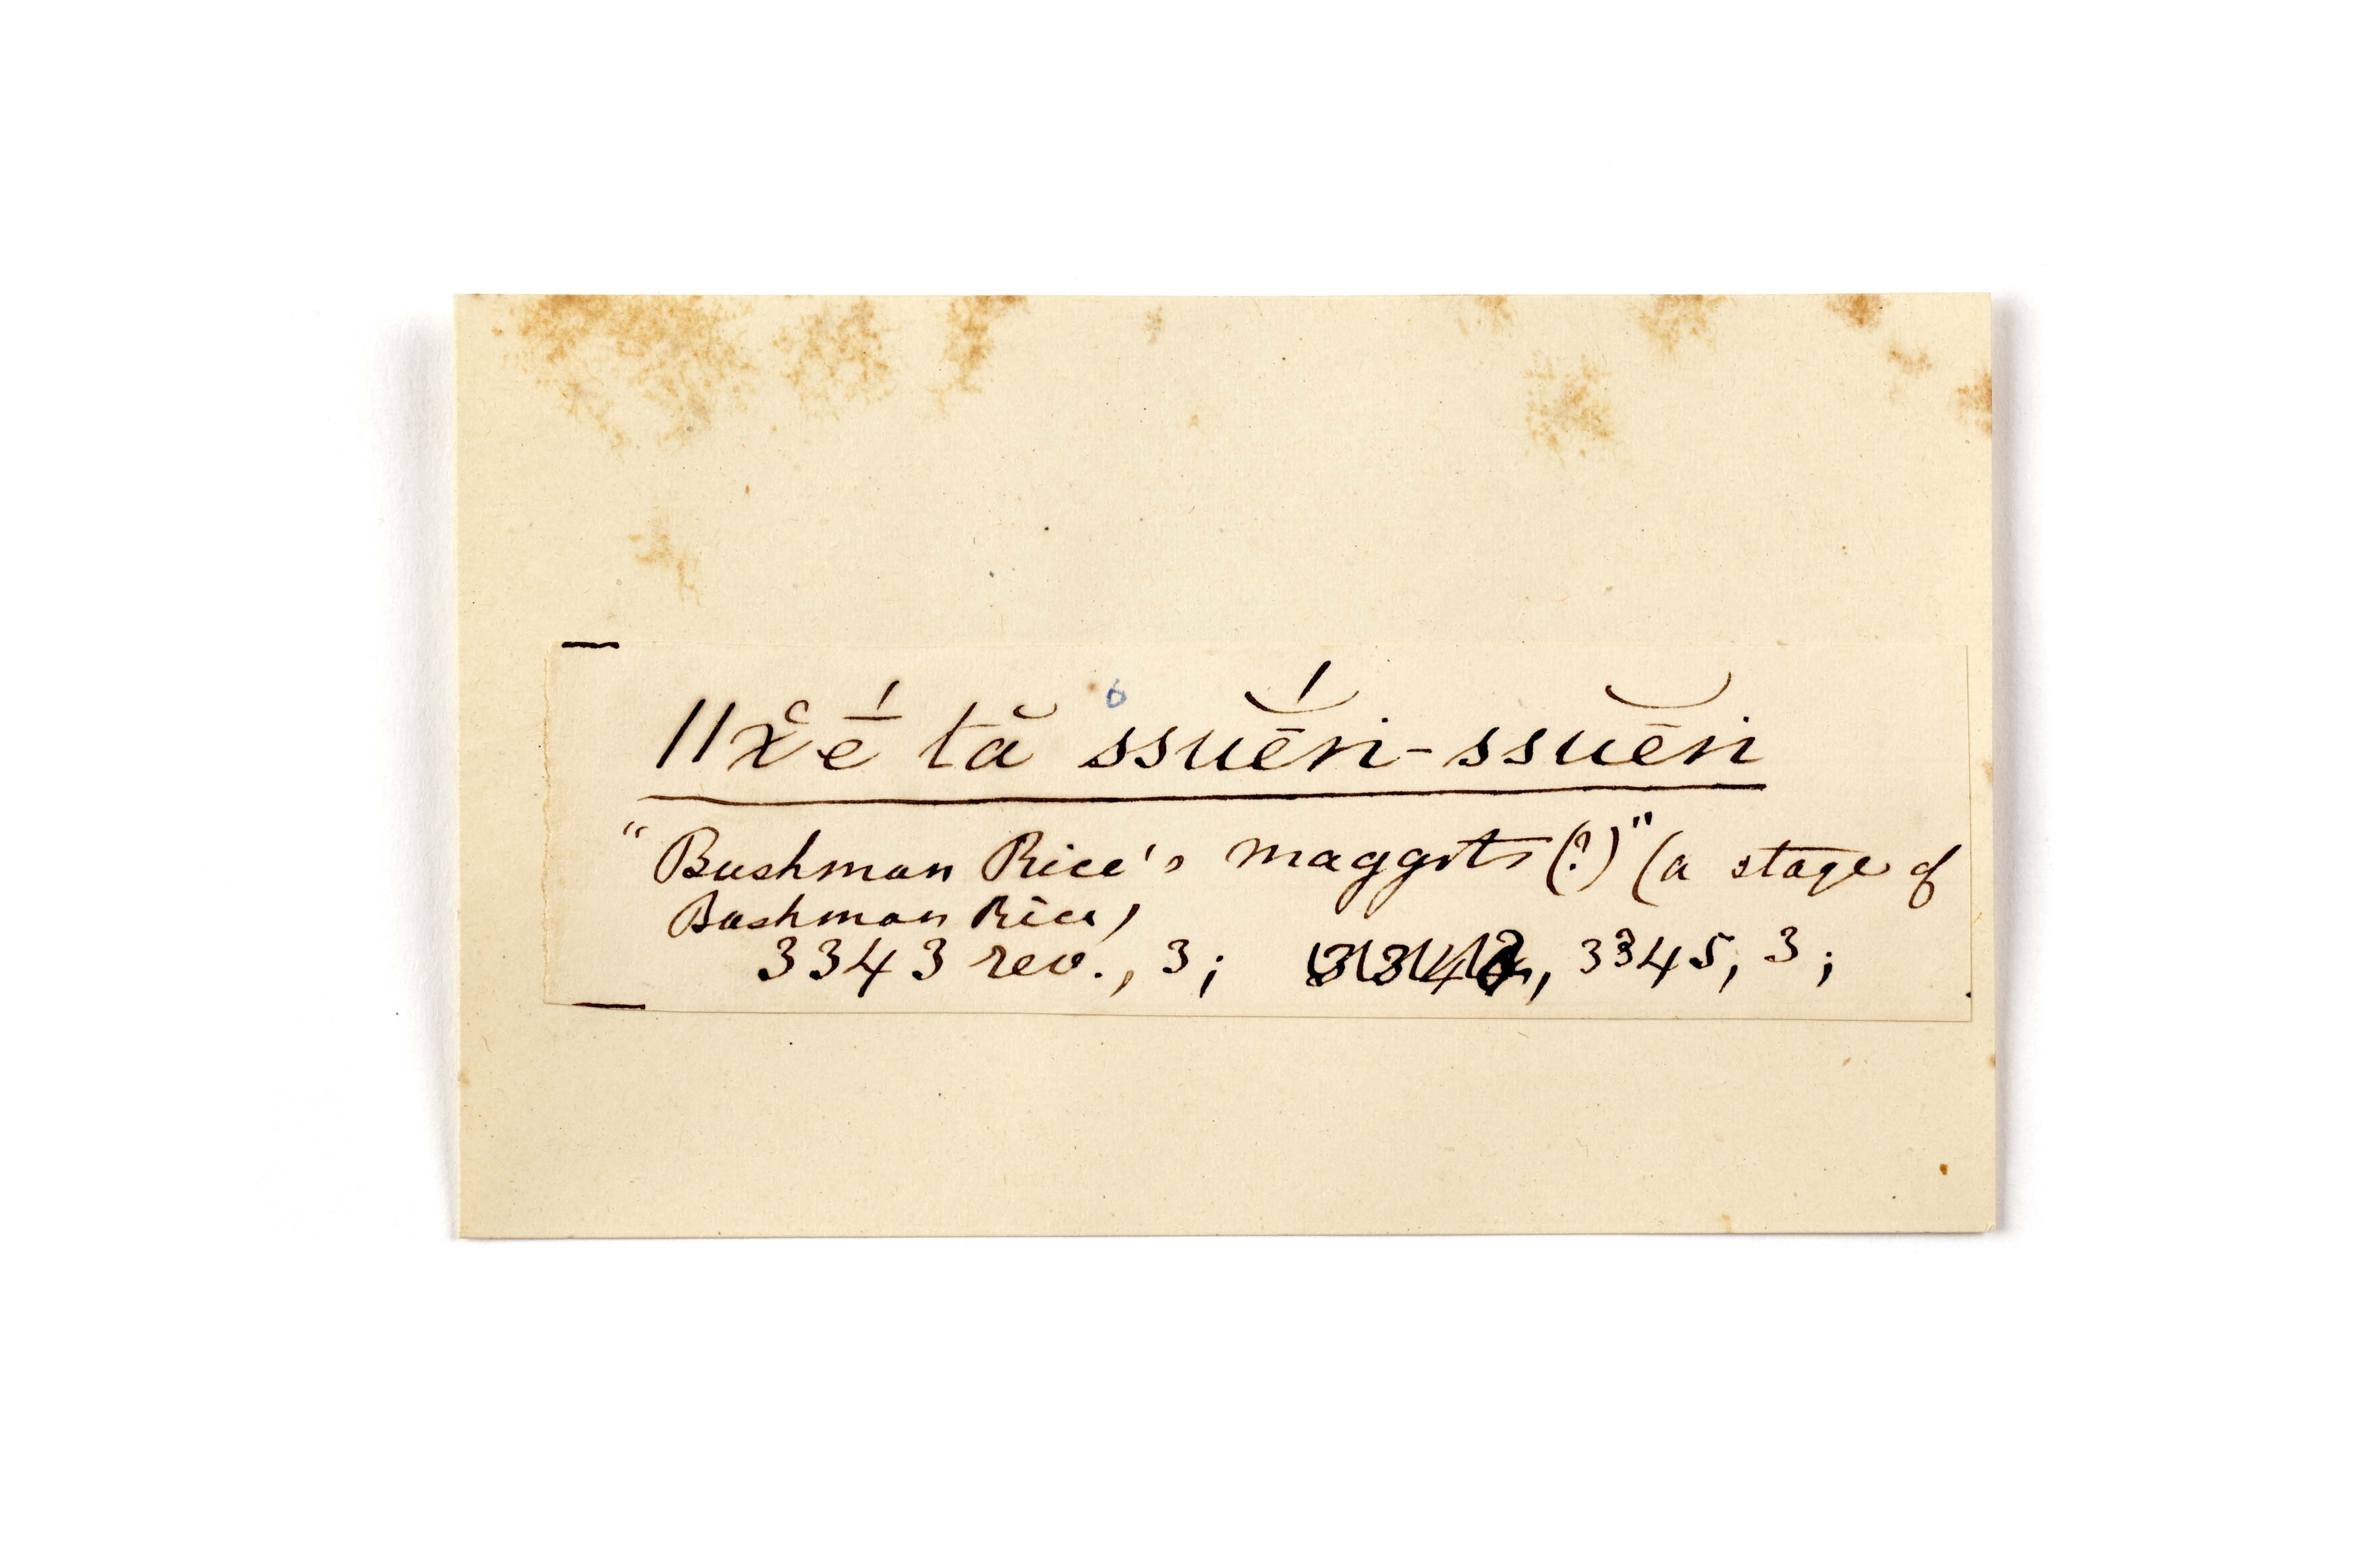 ǁχ̆é̄ tă ssuē̆́n-ssuē̆n
"Bushman Rice's maggots (?)" (a stage of
Bushman Rice)
3343 rev., 3; 3345, 3;